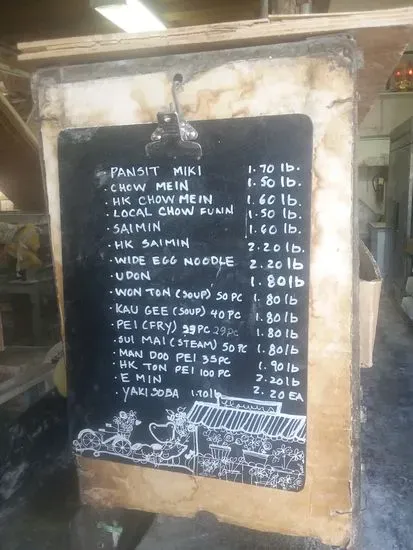 · PANSIT MIKI 1.70 lb.
· CHOW MEIN 1.50 lb.
· HK CHOW MEIN 1.60 lb.
· LOCAL CHOW FUNN 1.50 lb.
· SAIMIN 1.60 lb.
· HK SAIMIN 2.20 lb.
· WIDE EGG NOODLE 2.20 lb
· UDON 1.80 lb
· WON TON (SOUP) 50 PC 1.80 lb
· KAU GEE (SOUP) 40 PC 1.80 lb
· PEI (FRY) 29 PC 1.80 lb
· SUI MAI (STEAM) 50 PC 1.80 lb
· MAN DOO PEI 35 PC 1.90 lb
· HK TON PEI 100 PC 2.20 lb
· E MIN 2.20 EA
· YAKISOBA 1.70 lb